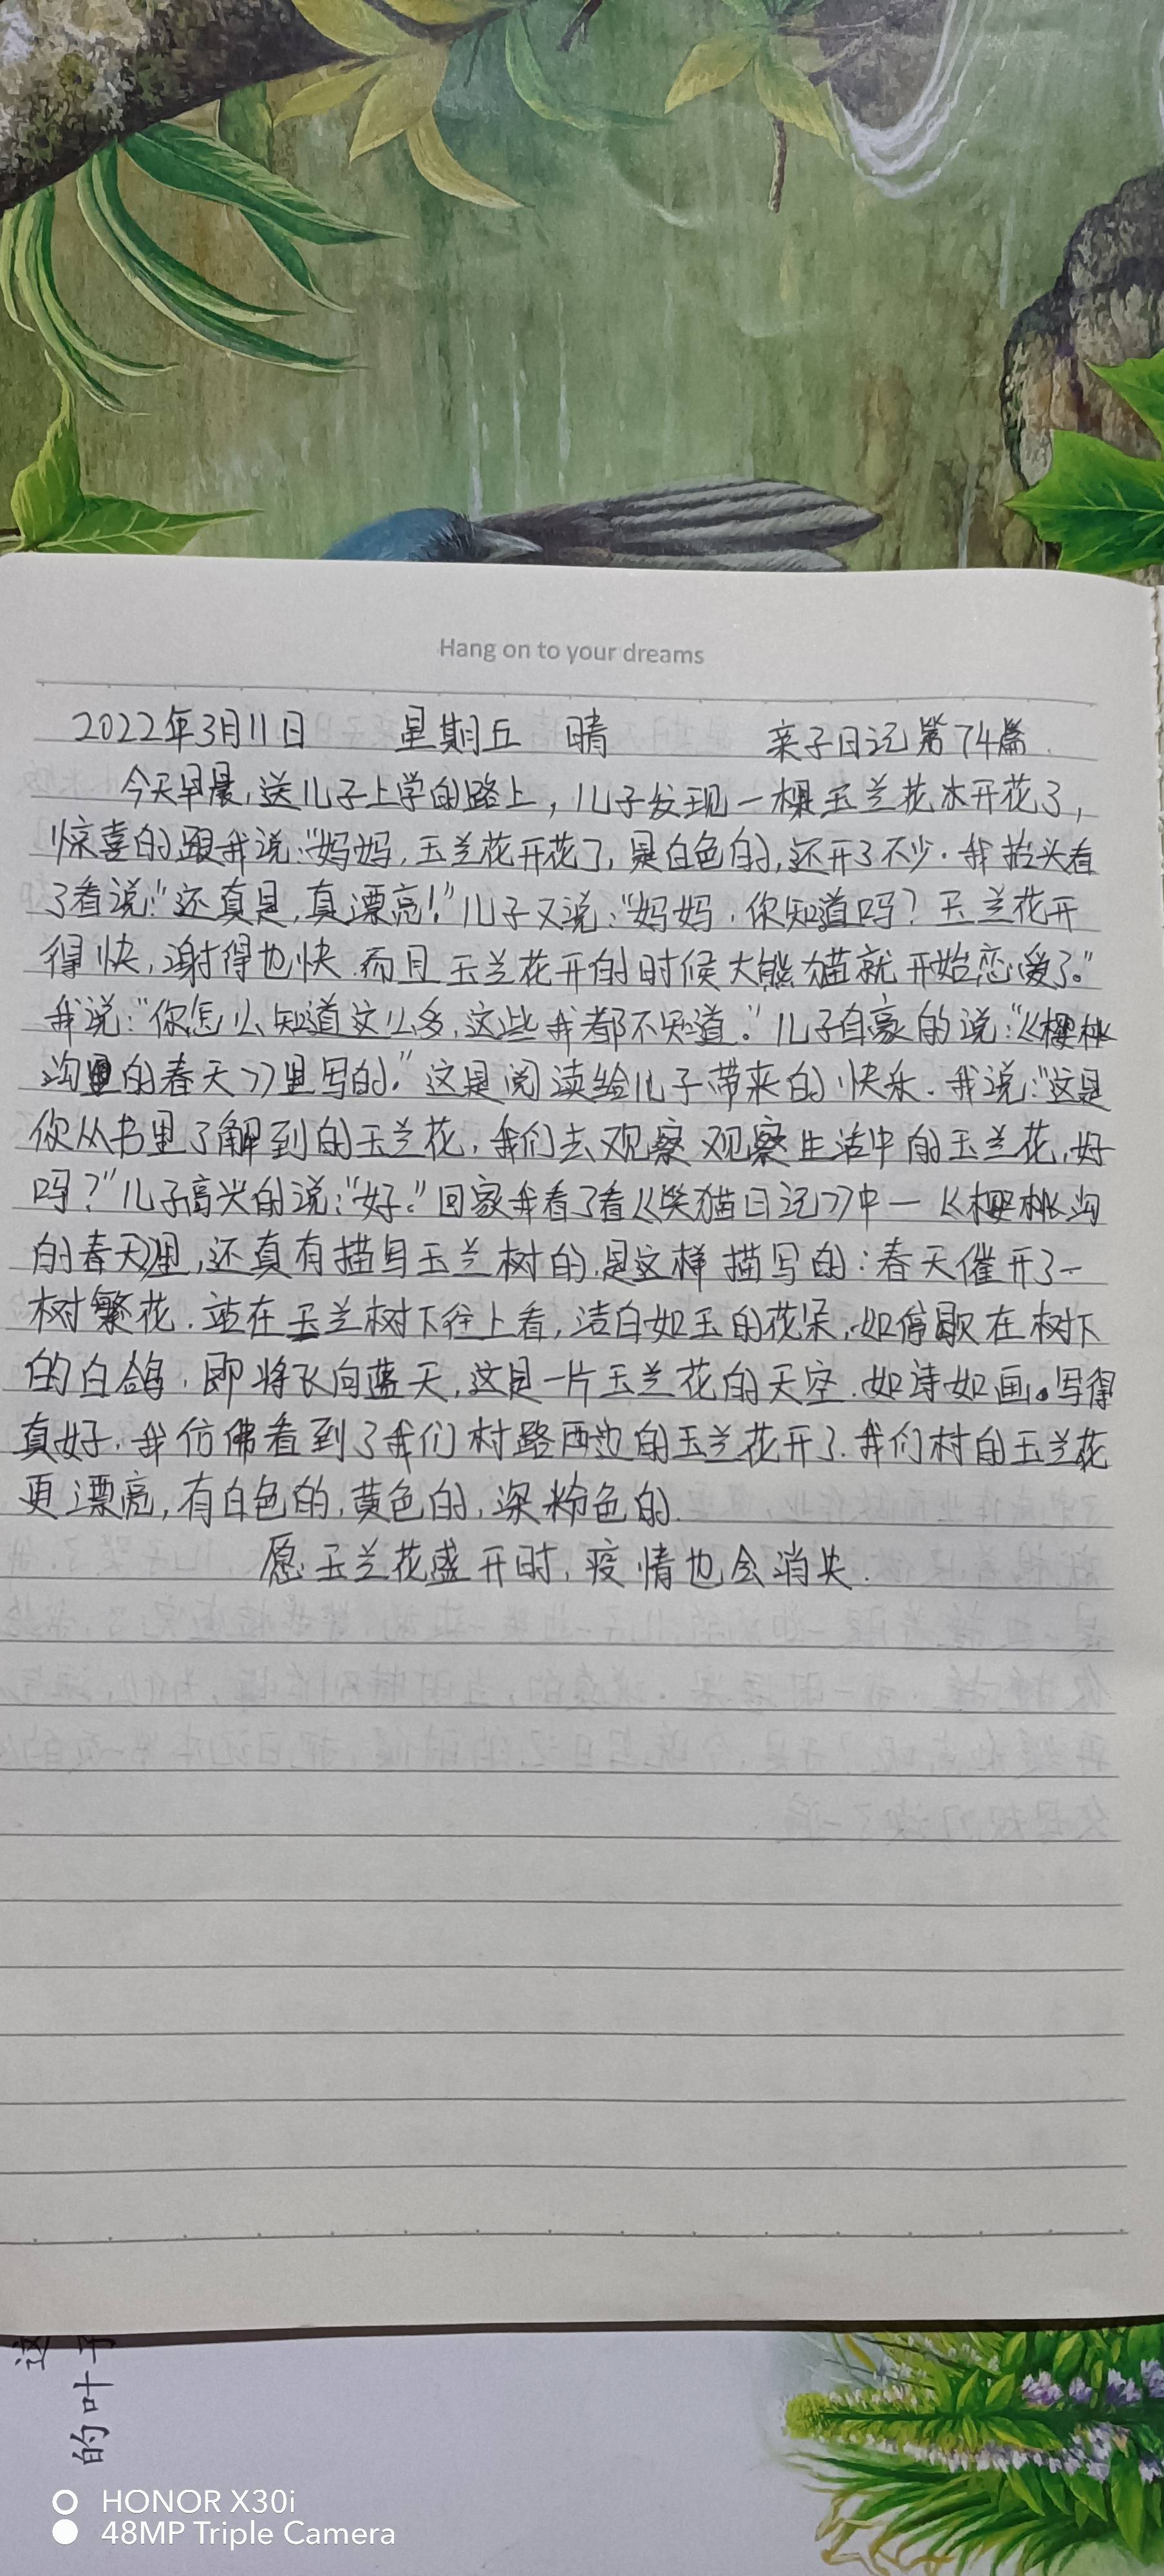 Hang on to your dreams
2022年3月11日 星期五 晴 亲子日记第74篇
今天早晨,送儿子上学的路上,儿子发现一棵玉兰花木开花了,
惊喜的跟我说:“妈妈,玉兰花开花了,是白色的,还开了不少.我抬头看
了看说:“还真是,真漂亮!”儿子又说:“妈妈,你知道吗?玉兰花开
得快,谢得也快.而且玉兰花开的时候大熊猫就开始恋爱了。”
我说:“你怎么知道这么多,这些我都不知道.”儿子自豪的说:“《樱桃
沟里的春天》里写的.”这是阅读给儿子带来的快乐.我说:“这是
你从书里了解到的玉兰花,我们去观察观察生活中的玉兰花,好
吗?”儿子高兴的说:“好。”回家我看了看《笑猫日记》中一《樱桃沟
的春天》里,还真有描写玉兰树的.是这样描写的:春天催开了一
树繁花.站在玉兰树下往上看,洁白如玉的花朵,如停歇在树下
的白鸽.即将飞向蓝天,这是一片玉兰花的天空.如诗如画。写得
真好.我仿佛看到了我们村路两边的玉兰花开了.我们村的玉兰花
更漂亮,有白色的,黄色的,深粉色的.
愿玉兰花盛开时,疫情也会消失.
这
的叶子
HONOR X30i
48MP Triple Camera